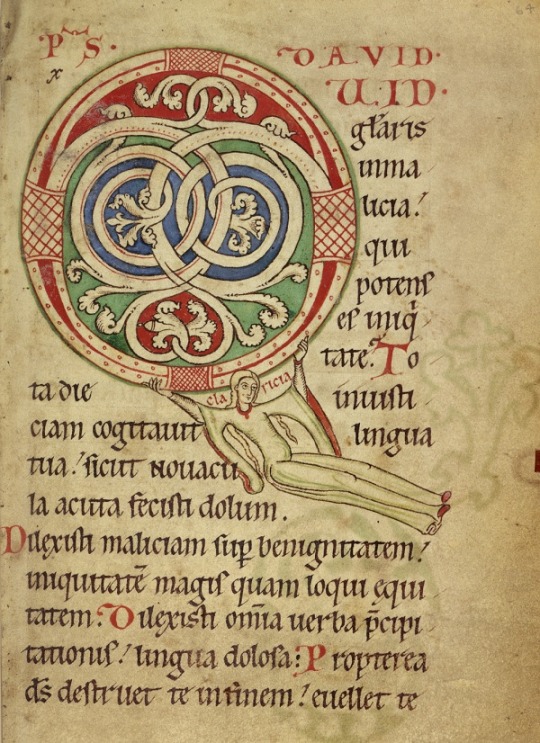 PS DAVID
x UID
gl̄aris
inma
licia!
qui
potens
es iniq̇
tate? To
ta die inuisti
claricia
ciam cogitauit lingua
tua! sicut nouacu
la acuta fecisti dolum.
Dilexisti maliciam sup̄ benignitatem!
iniquitatē magis quam loqui equi
tatem. Dilexisti om̄ia uerba p̄cipi
tationis! lingua dolosa: Propterea
d̄s destruet te infinem! euellet te